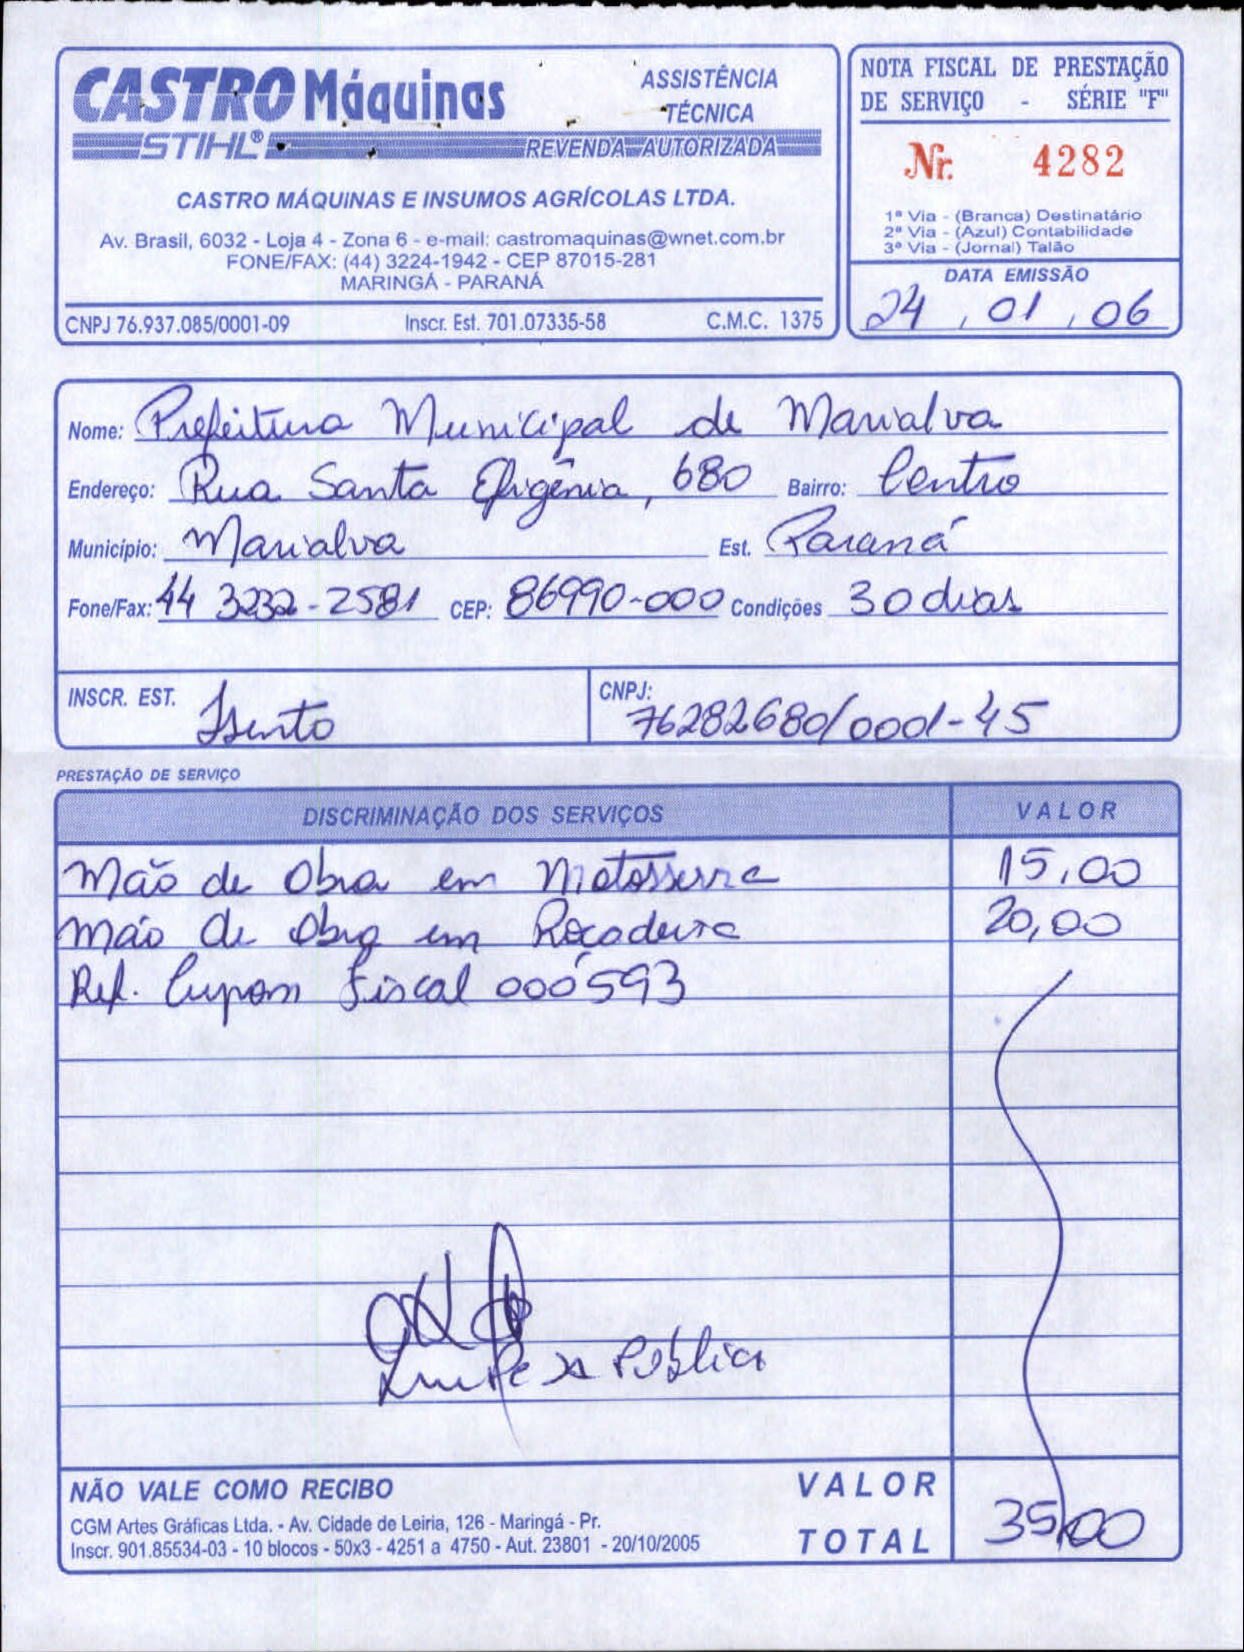 CASTRO Máquinas
ASSISTÊNCIA
TÉCNICA
STIHL®
REVENDA AUTORIZADA
CASTRO MÁQUINAS E INSUMOS AGRÍCOLAS LTDA.
Av. Brasil, 6032 - Loja 4 - Zona 6 - e-mail: castromaquinas@wnet.com.br
FONE/FAX: (44) 3224-1942 - CEP 87015-281
MARINGÁ - PARANÁ
CNPJ 76.937.085/0001-09 Inscr. Est. 701.07335-58 C.M.C. 1375
NOTA FISCAL DE PRESTAÇÃO
DE SERVIÇO - SÉRIE "F"
Nr. 4282
1ª Via - (Branca) Destinatário
2ª Via - (Azul) Contabilidade
3ª Via - (Jornal) Talão
DATA EMISSÃO
24 , 01 , 06
Nome: Prefeitura Municipal de Marialva
Endereço: Rua Santa Efigênia, 680 Bairro: Centro
Município: Marialva Est. Paraná
Fone/Fax: 44 3232-2581 CEP: 86990-000 Condições 30 dias
INSCR. EST. Isento
CNPJ: 76282680/0001-45
PRESTAÇÃO DE SERVIÇO
DISCRIMINAÇÃO DOS SERVIÇOS VALOR
Mão de Obra em Motosserra 15,00
Mão de Obra em Roçadeira 20,00
Ref. Cupom Fiscal 000593
Limpeza Pública
NÃO VALE COMO RECIBO
CGM Artes Gráficas Ltda. - Av. Cidade de Leiria, 126 - Maringá - Pr.
Inscr. 901.85534-03 - 10 blocos - 50x3 - 4251 a 4750 - Aut. 23801 - 20/10/2005
VALOR
TOTAL
35,00